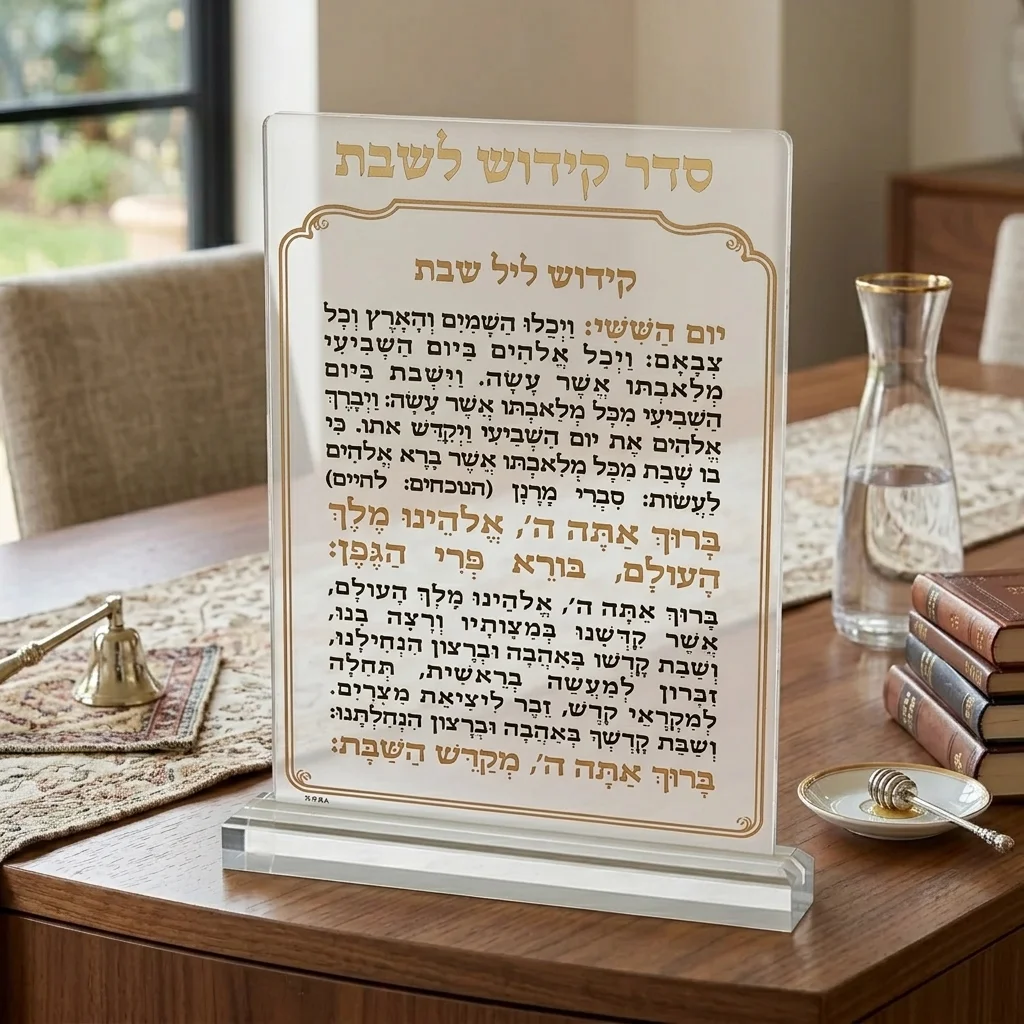 סדר קידוש לשבת
קידוש ליל שבת
יום הַשִּׁשִּׁי: וַיְכֻלּוּ הַשָּׁמַיִם וְהָאָרֶץ וְכָל
צְבָאָם: וַיְכַל אֱלֹהִים בַּיּוֹם הַשְּׁבִיעִי
מְלַאכְתּוֹ אֲשֶׁר עָשָׂה. וַיִּשְׁבֹּת בַּיּוֹם
הַשְּׁבִיעִי מִכָּל מְלַאכְתּוֹ אֲשֶׁר עָשָׂה: וַיְבָרֶךְ
אֱלֹהִים אֶת יוֹם הַשְּׁבִיעִי וַיְקַדֵּשׁ אֹתוֹ. כִּי
בוֹ שָׁבַת מִכָּל מְלַאכְתּוֹ אֲשֶׁר בָּרָא אֱלֹהִים
לַעֲשׂוֹת: סַבְרִי מָרָנָן (תנוכחים: לחיים)
בָּרוּךְ אַתָּה ה', אֱלֹהֵינוּ מֶלֶךְ
הָעוֹלָם, בּוֹרֵא פְּרִי הַגֶּפֶן:
בָּרוּךְ אַתָּה ה', אֱלֹהֵינוּ מֶלֶךְ הָעוֹלָם,
אֲשֶׁר קִדְּשָׁנוּ בְּמִצְוֹתָיו וְרָצָה בָנוּ,
וְשַׁבַּת קָדְשׁוֹ בְּאַהֲבָה וּבְרָצוֹן הִנְחִילָנוּ,
זִכָּרוֹן לְמַעֲשֵׂה בְרֵאשִׁית, תְּחִלָּה
לְמִקְרָאֵי קֹדֶשׁ, זֵכֶר לִיצִיאַת מִצְרָיִם.
וְשַׁבַּת קָדְשְׁךָ בְּאַהֲבָה וּבְרָצוֹן הִנְחַלְתָּנוּ:
בָּרוּךְ אַתָּה ה', מְקַדֵּשׁ הַשַּׁבָּת: